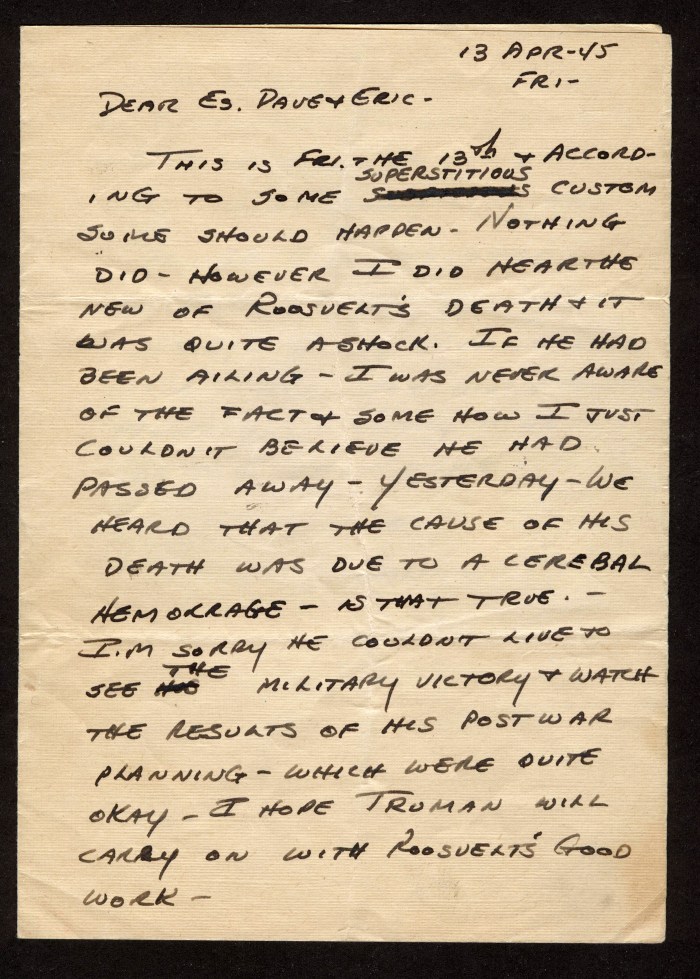 13 APR-45
FRI-
DEAR ES. DAVE & ERIC-
THIS IS FRI. THE 13th & ACCORD-
SUPERSTITIOUS
ING TO SOME CUSTOM
SOME SHOULD HAPPEN- NOTHING
DID- HOWEVER I DID HEAR THE
NEW OF ROOSVELT'S DEATH & IT
WAS QUITE A SHOCK. IF HE HAD
BEEN AILING - I WAS NEVER AWARE
OF THE FACT & SOME HOW I JUST
COULDN'T BELIEVE HE HAD
PASSED AWAY - YESTERDAY - WE
HEARD THAT THE CAUSE OF HIS
DEATH WAS DUE TO A CEREBAL
HEMORRAGE - IS THAT TRUE. -
I.M SORRY HE COULDN'T LIVE TO
THE
SEE MILITARY VICTORY & WATCH
THE RESULTS OF HIS POST WAR
PLANNING - WHICH WERE QUITE
OKAY - I HOPE TRUMAN WILL
CARRY ON WITH ROOSVELT'S GOOD
WORK -